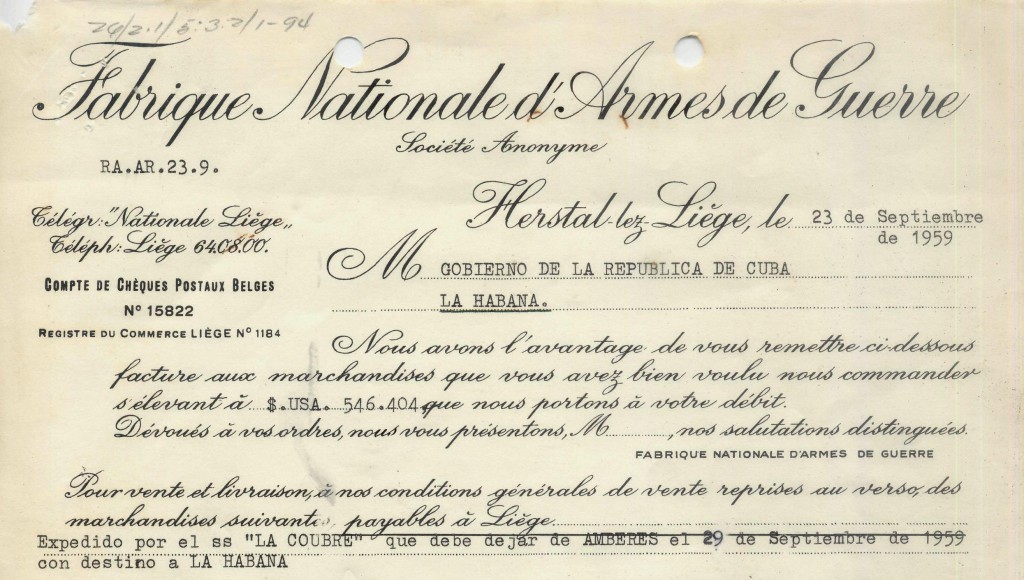 29/2.1/5:3.2/1-94
Fabrique Nationale d'Armes de Guerre
Société Anonyme
RA.AR.23.9.
Herstal-lez-Liège, le 23 de Septiembre
de 1959
Télégr: "Nationale Liège„
Téléph: Liège 64.08.00.
M GOBIERNO DE LA REPUBLICA DE CUBA
LA HABANA.
COMPTE DE CHÈQUES POSTAUX BELGES
Nº 15822
REGISTRE DU COMMERCE LIÈGE Nº 1184
Nous avons l'avantage de vous remettre ci-dessous
facture aux marchandises que vous avez bien voulu nous commander
s'élevant à $.USA. 546.404,- que nous portons à votre débit.
Dévoués à vos ordres, nous vous présentons, M , nos salutations distinguées.
FABRIQUE NATIONALE D'ARMES DE GUERRE
Pour vente et livraison, à nos conditions générales de vente reprises au verso, des
marchandises suivantes, payables à Liège
Expedido por el ss "LA COUBRE" que debe dejar de AMBERES el 29 de Septiembre de 1959
con destino a LA HABANA